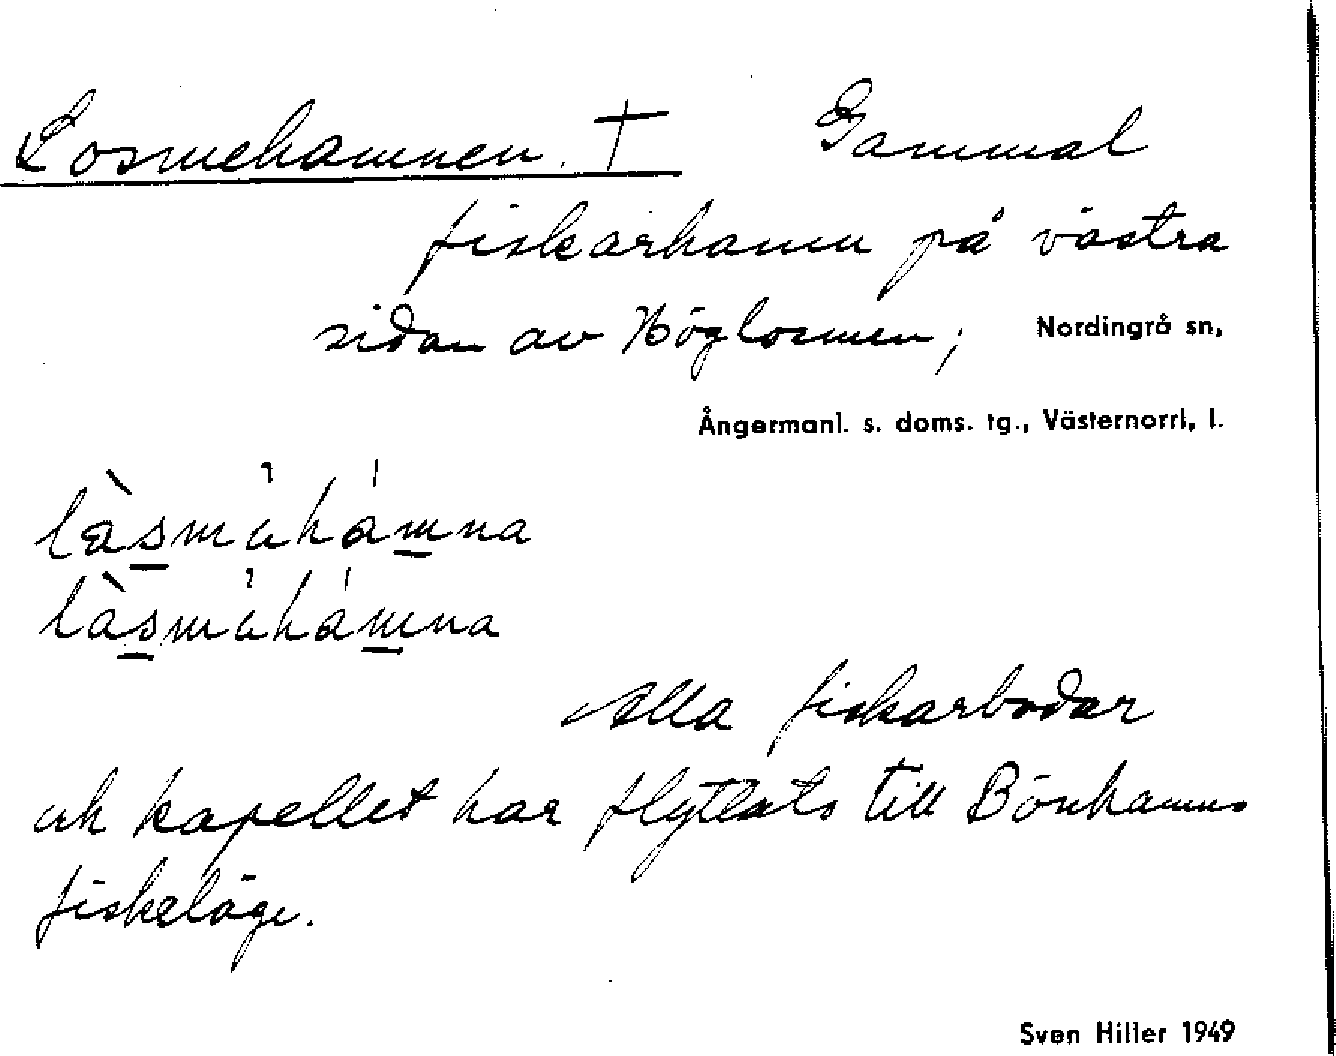 Losmehamnen. † Gammal
fiskarhamn på västra
sidan av Höglosmen; Nordingrå sn,
Ångermanl. s. doms. tg., Västernorrl. l.
làsmåhámna
làsmåhámna
Alla fiskarbodar
och kapellet har flyttats till Bönhamns
fiskeläge.
Sven Hiller 1949